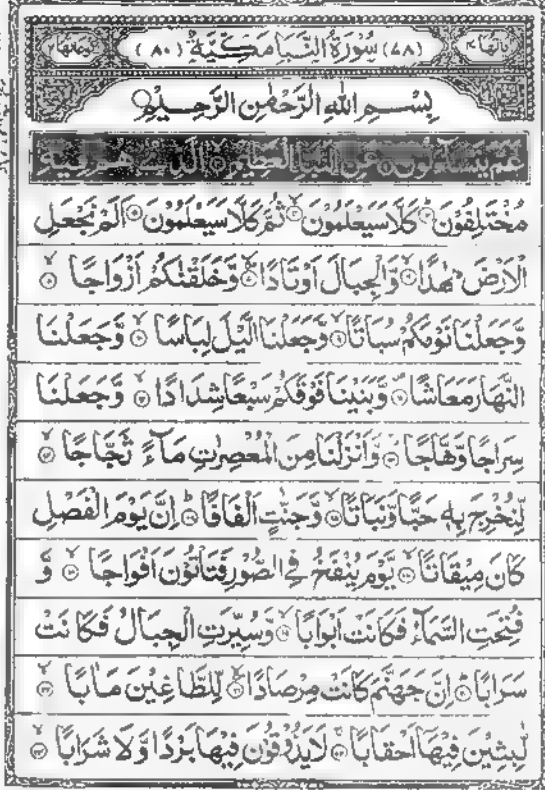 (٧٨) سُوْرَةُ النَّبَاِ مَكِّيَّةٌ (٨٠)
بِسْمِ اللهِ الرَّحْمٰنِ الرَّحِيْمِ
عَمَّ يَتَسَآءَلُوْنَ ۝ عَنِ النَّبَاِ الْعَظِيْمِ ۝ الَّذِيْ هُمْ فِيْهِ
مُخْتَلِفُوْنَ ۝ كَلَّا سَيَعْلَمُوْنَ ۝ ثُمَّ كَلَّا سَيَعْلَمُوْنَ ۝ اَلَمْ نَجْعَلِ
الْاَرْضَ مِهٰدًا ۝ وَّالْجِبَالَ اَوْتَادًا ۝ وَّخَلَقْنٰكُمْ اَزْوَاجًا ۝
وَّجَعَلْنَا نَوْمَكُمْ سُبَاتًا ۝ وَّجَعَلْنَا الَّيْلَ لِبَاسًا ۝ وَّجَعَلْنَا
النَّهَارَ مَعَاشًا ۝ وَّبَنَيْنَا فَوْقَكُمْ سَبْعًا شِدَادًا ۝ وَّجَعَلْنَا
سِرَاجًا وَّهَّاجًا ۝ وَّاَنْزَلْنَا مِنَ الْمُعْصِرٰتِ مَآءً ثَجَّاجًا ۝
لِّنُخْرِجَ بِهٖ حَبًّا وَّنَبَاتًا ۝ وَّجَنّٰتٍ اَلْفَافًا ۝ اِنَّ يَوْمَ الْفَصْلِ
كَانَ مِيْقَاتًا ۝ يَّوْمَ يُنْفَخُ فِي الصُّوْرِ فَتَاْتُوْنَ اَفْوَاجًا ۝ وَّ
فُتِحَتِ السَّمَآءُ فَكَانَتْ اَبْوَابًا ۝ وَّسُيِّرَتِ الْجِبَالُ فَكَانَتْ
سَرَابًا ۝ اِنَّ جَهَنَّمَ كَانَتْ مِرْصَادًا ۝ لِّلطَّاغِيْنَ مَاٰبًا ۝
لّٰبِثِيْنَ فِيْهَآ اَحْقَابًا ۝ لَا يَذُوْقُوْنَ فِيْهَا بَرْدًا وَّلَا شَرَابًا ۝